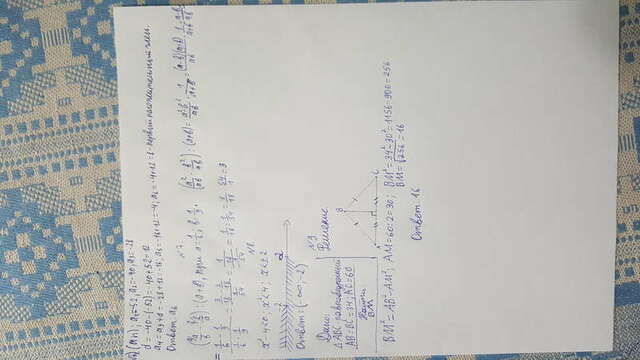 (aₙ); a₁=-52, a₂=-40, a₃=-28
d = -40-(-52) = -40+52=12
a₄=a₃+d=-28+12=-16, a₅=-16+12=-4; a₆=-4+12=8 - первый положительный член.
Ответ: a₆
№7
(a/b - b/a) : (a+b), при a=1/3, b=1/9. (a²/ab - b²/ab) : (a+b) = a²-b²/ab · 1/a+b = (a-b)(a+b)/ab · 1/a+b = a-b/ab
№8
x²-4<0; x²<4; x<±2
-2 2
Ответ = (-∞; -2)
№9
Дано: Решение
△ABC-равнобедренный
AB=BC=34; AC=60
Найти
BM
B
A M C
BM²=AB²-AM²; AM=60:2=30; BM²=34²-30²=1156-900=256
BM=√256=16
Ответ: 16